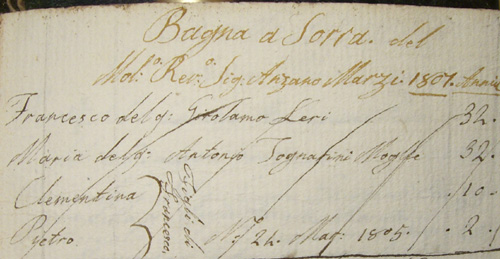 Bagna a Sorra. del
Mol:º Rev:º Sig: Anzano Marzi. 1807. Anni
Francesco del q: Girolamo Leri 32.
Maria del q: Antonio Tognarini Moglie 32.
Clementina 10.
Figli di Francesco,
Pietro. N: 24. Mag: 1805. 2.